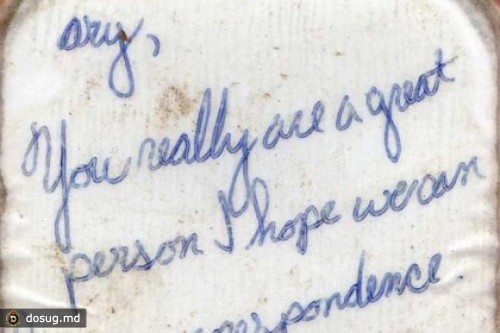 ary,
You really are a great
person I hope we can
orrespondence.
dosug.md